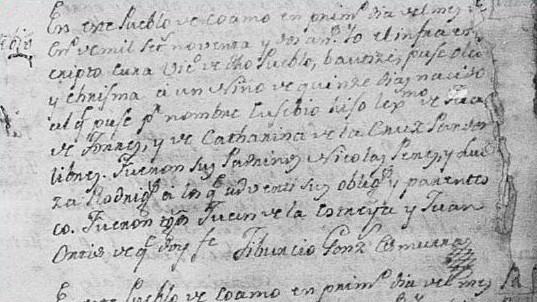 En este Pueblo de Coamo en prim.o dia del mes de
En.o de mil set.s noventa y dos an.s Yo el infraes
cripto Cura Vic.o de dho Pueblo, bautizè, puse oleo
y chrisma à un Niño de quinze dias nacido
al q.e puse p.r nombre Eusebio hijo lex.mo de Juan
de Torres, y de Catharina de la Cruz Pardos
libres. Fueron sus Padrinos Nicolas Peres, y Lui
za Rodrig.s à los q.e advertí su oblig.n y parentes
co. Fueron tgos Juan de la y Juan
Ortis de q.e doy fe Tiburcio Gonz
En este Pueblo de Coamo en prim.o dia del mes